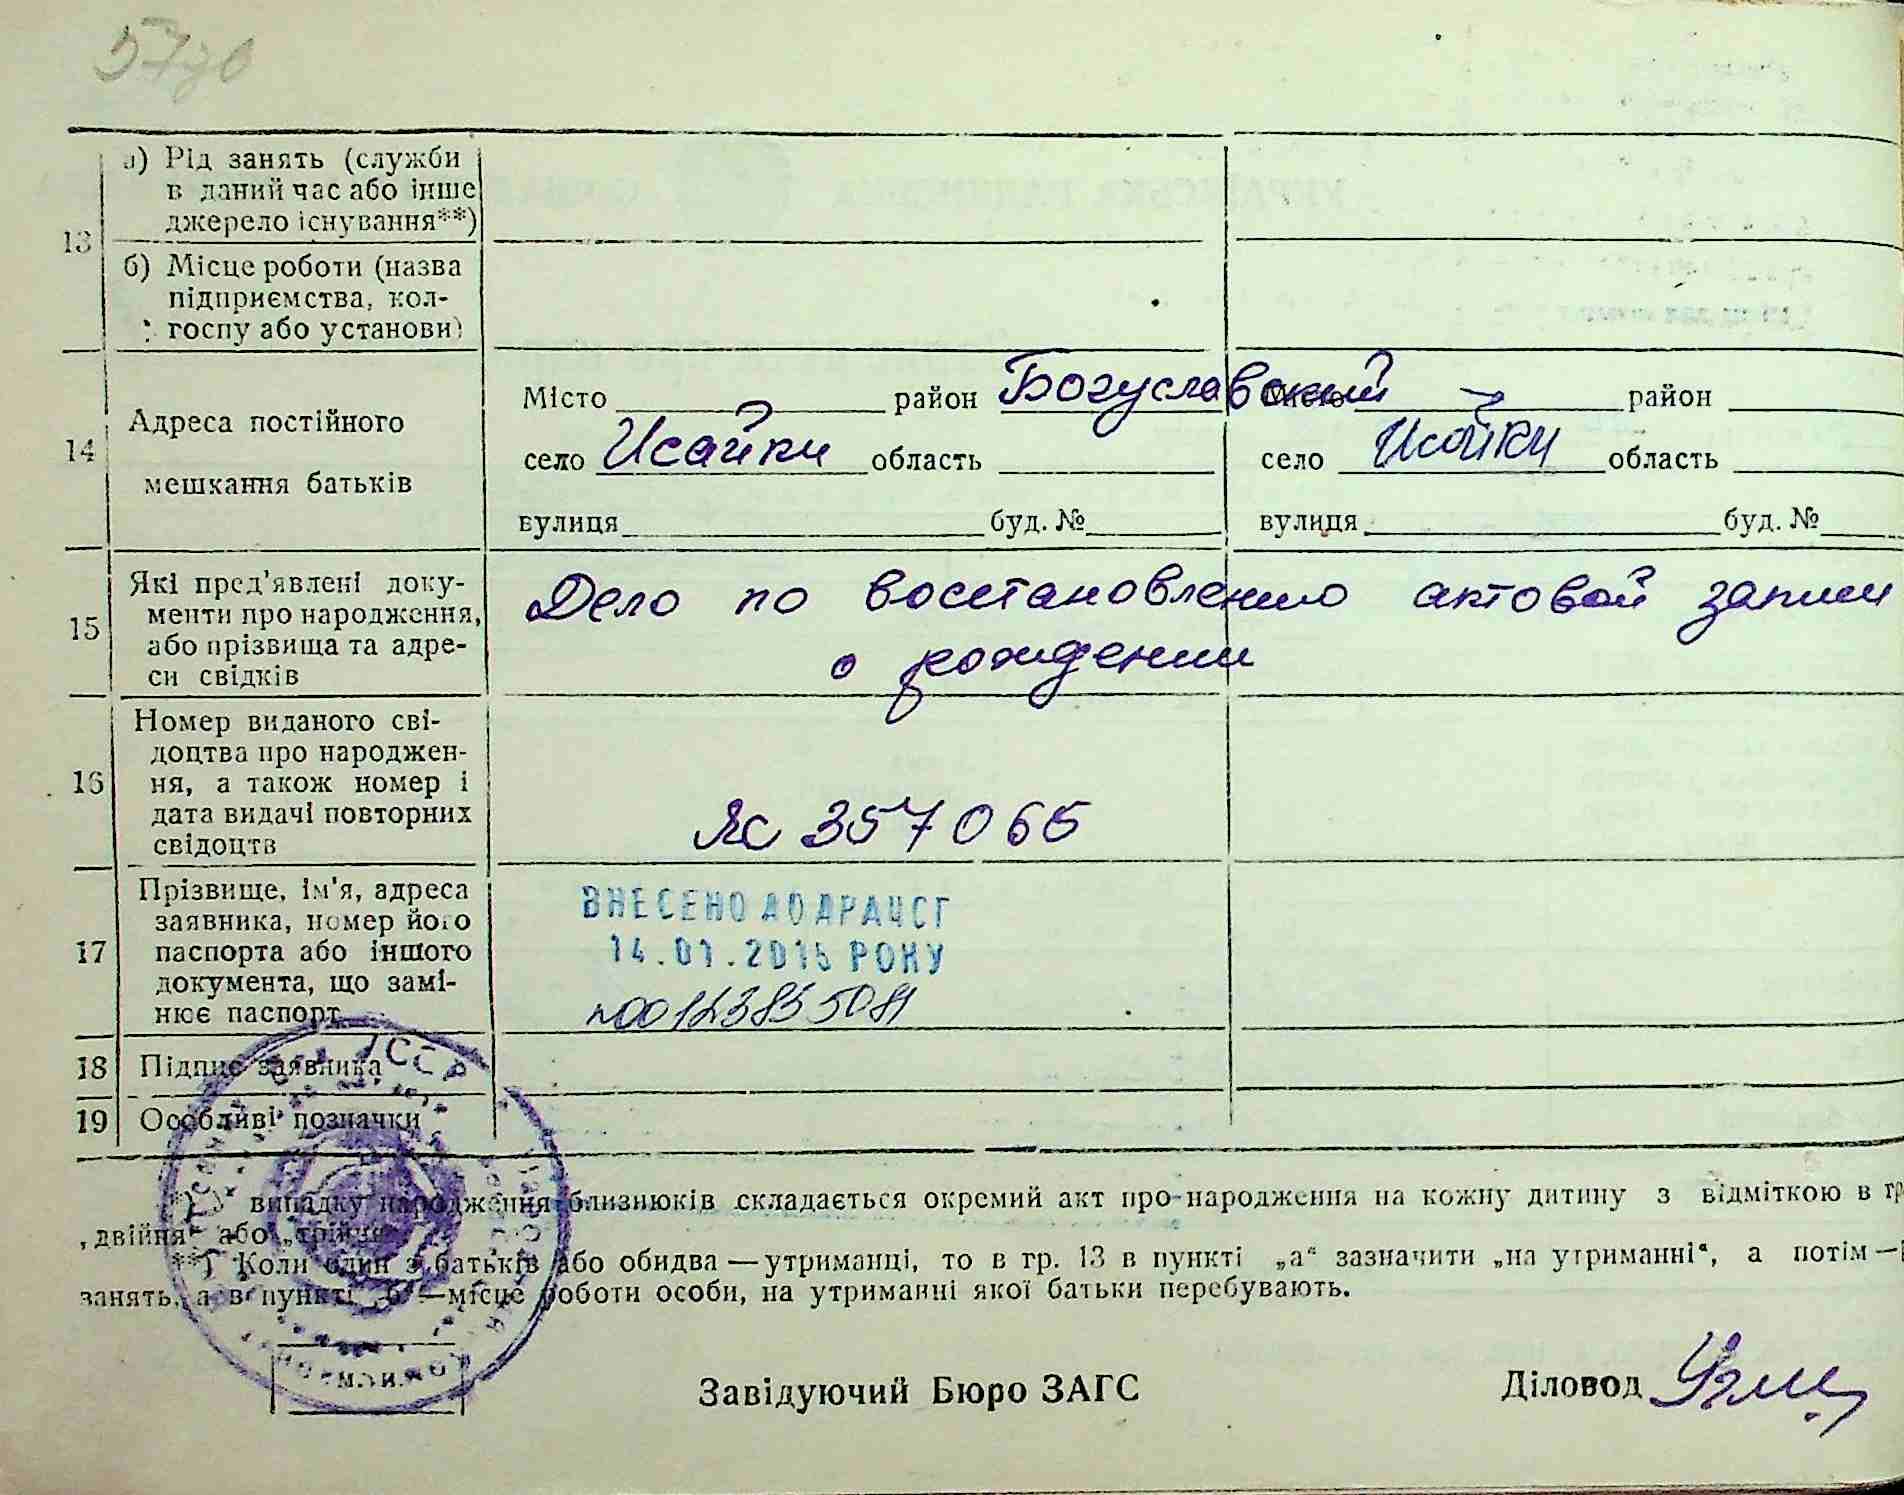 13 а) Рід занять (служби
в даний час або інше
джерело існування**)
б) Місце роботи (назва
підприємства, кол-
госпу або установи)
14 Адреса постійного
мешкання батьків
Місто район Богуславский Місто район
село Исайки область село Исайки область
вулиця буд. № вулиця буд. №
15 Які пред'явлені доку-
менти про народження,
або прізвища та адре-
си свідків
Дело по восстановлению актовой записи
о рождении
16 Номер виданого сві-
доцтва про народжен-
ня, а також номер і
дата видачі повторних
свідоцтв
ЯС 357065
17 Прізвище, ім'я, адреса
заявника, номер його
паспорта або іншого
документа, що замі-
нює паспорт
ВНЕСЕНО ДО ДРАЦСГ
14.01.2015 РОКУ
18 Підпис заявника
19 Особливі позначки
*) випадку народження близнюків складається окремий акт про народження на кожну дитину з відміткою в гр
„двійня" або „трійня"
**) Коли один з батьків або обидва — утриманці, то в гр. 13 в пункті „а" зазначити „на утриманні", а потім —
занять, а в пункті „б" — місце роботи особи, на утриманні якої батьки перебувають.
Завідуючий Бюро ЗАГС
Діловод